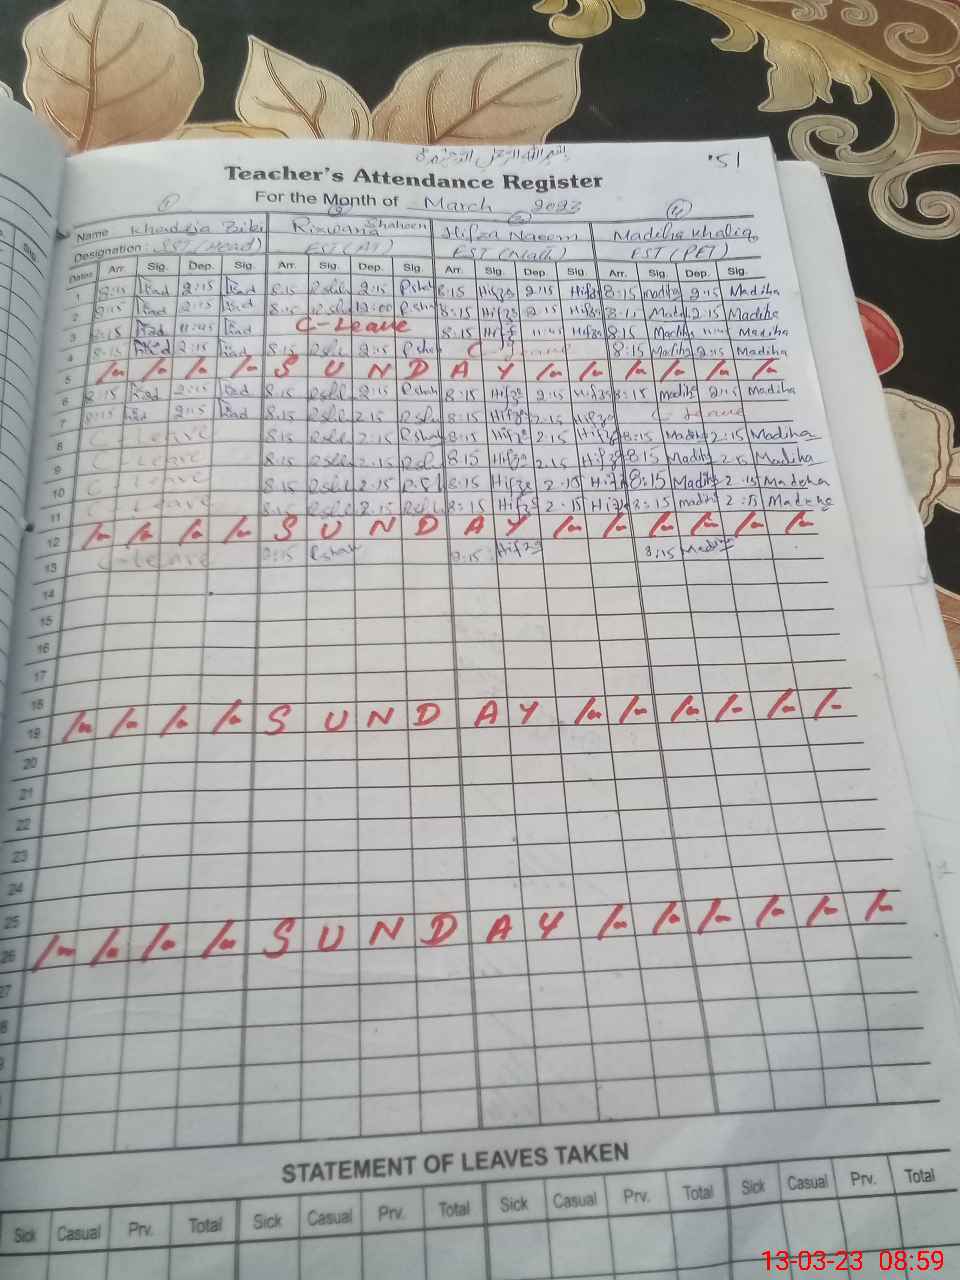 بسم الله الرحمن الرحيم
51
Teacher's Attendance Register
For the Month of March 2023
1 2 3 4
Name Khadija Bibi Rizwana Shaheen Hifza Naeem Madiha Khaliq
Designation: SST (Head) EST (AT) EST (Math) EST (PET)
Dates Arr. Sig. Dep. Sig. Arr. Sig. Dep. Sig. Arr. Sig. Dep. Sig. Arr. Sig. Dep. Sig.
1 8:15 2:15 8:15 2:15 8:15 2:15 8:15 madiha 2:15 Madiha
2 8:15 2:15 8:15 12:00 8:15 2:15 2:15 Madiha
3 8:15 11:45 C-Leave 8:15 11:45 8:15 Madiha 11:45 Madiha
4 8:15 2:15 8:15 2:15 C-Leave 8:15 Madiha 2:15 Madiha
5 S U N D A Y
6 8:15 2:15 8:15 2:15 8:15 2:15 8:15 Madiha 2:15 Madiha
7 8:15 2:15 8:15 2:15 8:15 2:15 C-Leave
8 C-Leave 8:15 2:15 8:15 2:15 8:15 Madiha 2:15 Madiha
9 C-Leave 8:15 2:15 8:15 2:15 8:15 Madiha 2:15 Madiha
10 C-Leave 8:15 2:15 8:15 2:15 8:15 Madiha 2:15 Madeha
11 C-Leave 8:15 2:15 8:15 2:15 8:15 madiha 2:15 Madeha
12 S U N D A Y
13 C-Leave 8:15 8:15 8:15 Madiha
14
15
16
17
18
19 S U N D A Y
20
21
22
23
24
25
26 S U N D A Y
27
STATEMENT OF LEAVES TAKEN
Sick Casual Prv. Total Sick Casual Prv. Total Sick Casual Prv. Total Sick Casual Prv. Total
13-03-23 08:59